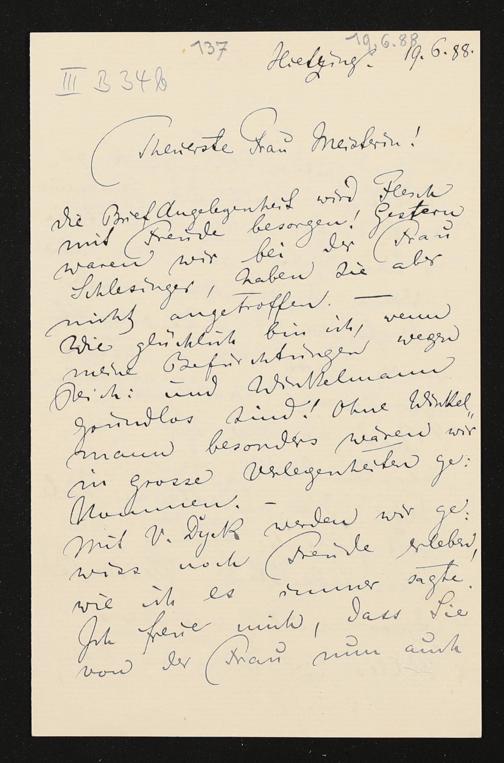 137
19.6.88
III B 34b
Hietzing. 19.6.88.
Theuerste Frau Meisterin!
die Brief Angelegenheit wird Flesch
mit Freude besorgen! Gestern
waren wir bei der Frau
Schlesinger, haben sie aber
nicht angetroffen. —
Wie glücklich bin ich, wenn
meine Befürchtungen wegen
Reich: und Winkelmann
grundlos sind! Ohne Winkel„
mann besonders wären wir
in grosse Verlegenheiten ge:
kommen. —
Mit V. Dyck werden wir ge:
wiss noch Freude erleben,
wie ich es immer sagte.
Ich freue mich, dass Sie
von der Frau nun auch